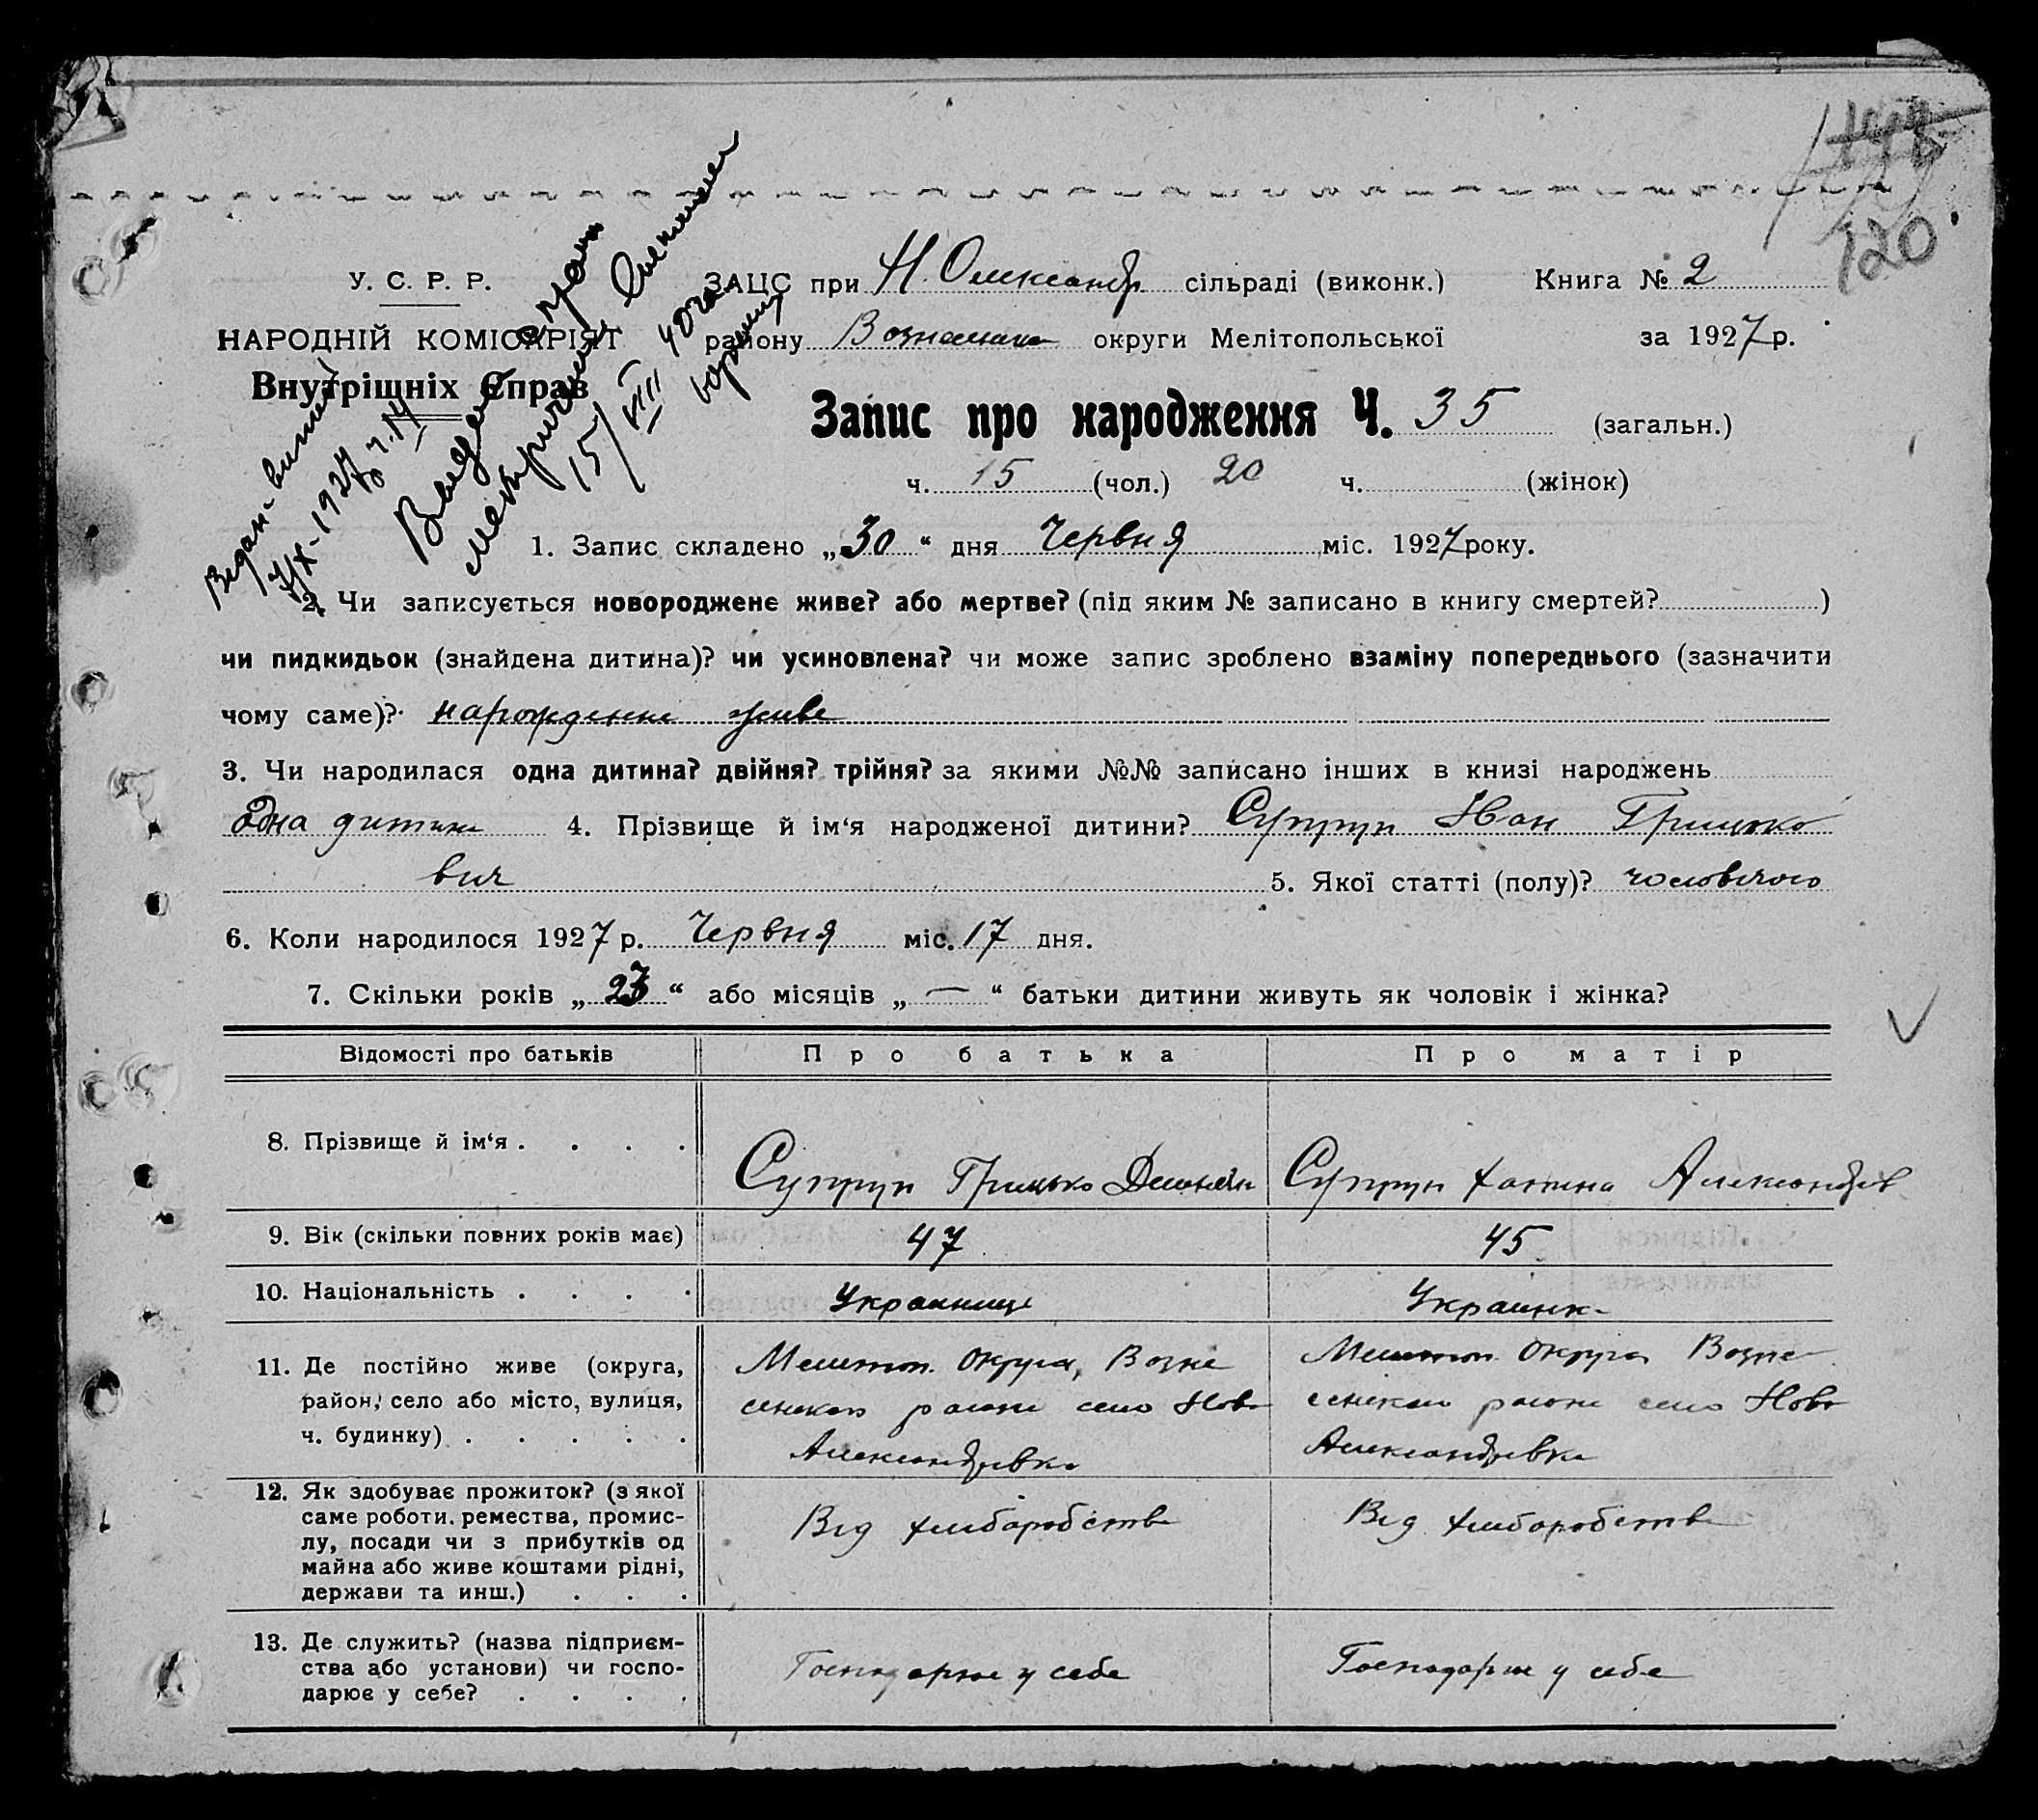 120
У. С. Р. Р.
НАРОДНІЙ КОМІСАРІЯТ
Внутрішніх Справ
ЗАЦС при Н. Олександр сільраді (виконк.)
Книга № 2
району округи Мелітопольської
за 1927 р.
Запис про народження Ч. 35 (загальн.)
ч. 15 (чол.) 20 ч. (жінок)
1. Запис складено „30“ дня Червня міс. 1927 року.
2. Чи записується новороджене живе? або мертве? (під яким № записано в книгу смертей? )
чи пидкидьок (знайдена дитина)? чи усиновлена? чи може запис зроблено взаміну попереднього (зазначити
чому саме)? нарожденне живе
3. Чи народилася одна дитина? двійня? трійня? за якими №№ записано інших в книзі народжень
одна дитина 4. Прізвище й ім‘я народженої дитини? Супрун Иван Грицько
вич 5. Якої статті (полу)? чоловічого
6. Коли народилося 1927 р. Червня міс. 17 дня.
7. Скільки років „ “ або місяців „—“ батьки дитини живуть як чоловік і жінка?
Відомості про батьків Про батька Про матір
8. Прізвище й ім‘я . . . . Супрун Грицько Супрун
9. Вік (скільки повних років має) 47 45
10. Національність . . . . Украинець Украинк
11. Де постійно живе (округа, Мелитоп. Округа, Возне Мелитоп. Округа Возне
район, село або місто, вулиця, сенского район село Ново сенского район село Ново
ч. будинку) . . . . . Александрівка Александрівка
12. Як здобуває прожиток? (з якої
саме роботи. ремества, промис- Від хліборобства Від хліборобства
лу, посади чи з прибутків од
майна або живе коштами рідні,
держави та инш.) . . .
13. Де служить? (назва підприєм-
ства або установи) чи госпо- Господарює у себе Господарює у себе
дарює у себе? . . . .